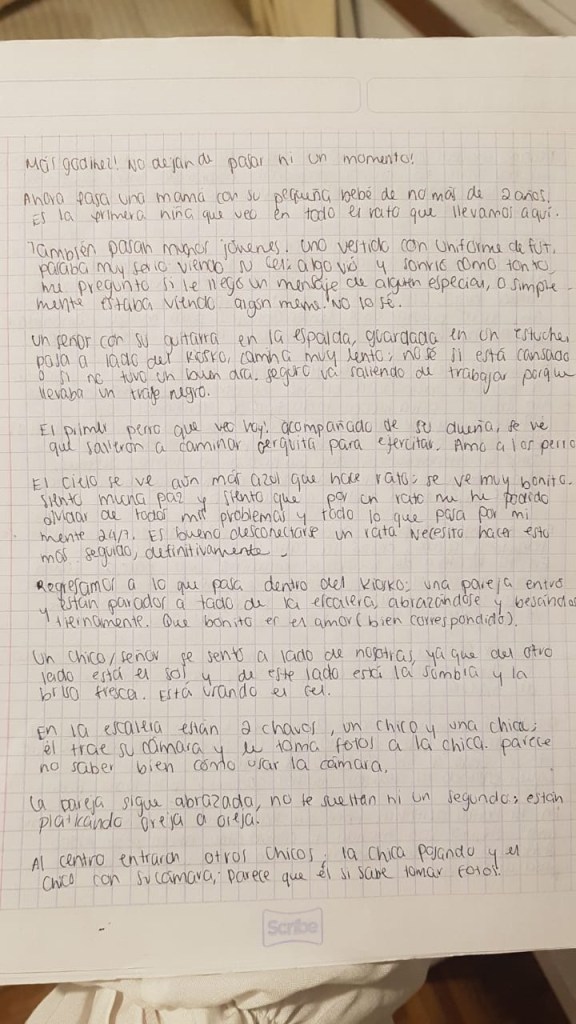 Más gadinez! No dejan de pasar ni un momento!
Ahora pasa una mama con su pequeña bebé de no más de 2 años.
Es la primera niña que veo en todo el rato que llevamos aquí.
También pasan muchos jóvenes. Uno vestido con uniforme de fut.
pasaba muy serio viendo su cel; algo vió y sonrió como tonto,
me pregunto si le llegó un mensaje de alguien especial, o simple-
mente estaba viendo algún meme. No lo sé.
Un señor con su guitarra en la espalda, guardada en un estuche,
pasa a lado del kiosko, camina muy lento; no sé si está cansado
o si no tuvo un buen día. Seguro va saliendo de trabajar porque
llevaba un traje negro.
El primer perro que veo hoy! acompañado de su dueña, se ve
que salieron a caminar cerquita para ejercitar. Amo a los perro
El cielo se ve aún más azul que hace rato; se ve muy bonito.
Siento mucha paz y siento que por un rato me he podido
olvidar de todos mis problemas y todo lo que pasa por mi
mente 24/7. Es bueno desconectarse un rato. Necesito hacer esto
más seguido, definitivamente.
Regresamos a lo que pasa dentro del kiosko; una pareja entró
y están parados a lado de la escalera, abrazándose y besándos
tiernamente. Que bonito es el amor (bien correspondido).
Un chico/señor se sentó a lado de nosotras, ya que del otro
lado está el sol y de este lado está la sombra y la
brisa fresca. Está usando el cel.
En la escalera están 2 chavos, un chico y una chica;
él trae su cámara y le toma fotos a la chica. parece
no saber bien cómo usar la cámara.
La pareja sigue abrazada, no se sueltan ni un segundo; están
platicando oreja a oreja.
Al centro entraron otros chicos; la chica posando y el
chico con su cámara; parece que él si sabe tomar fotos.
Scribe